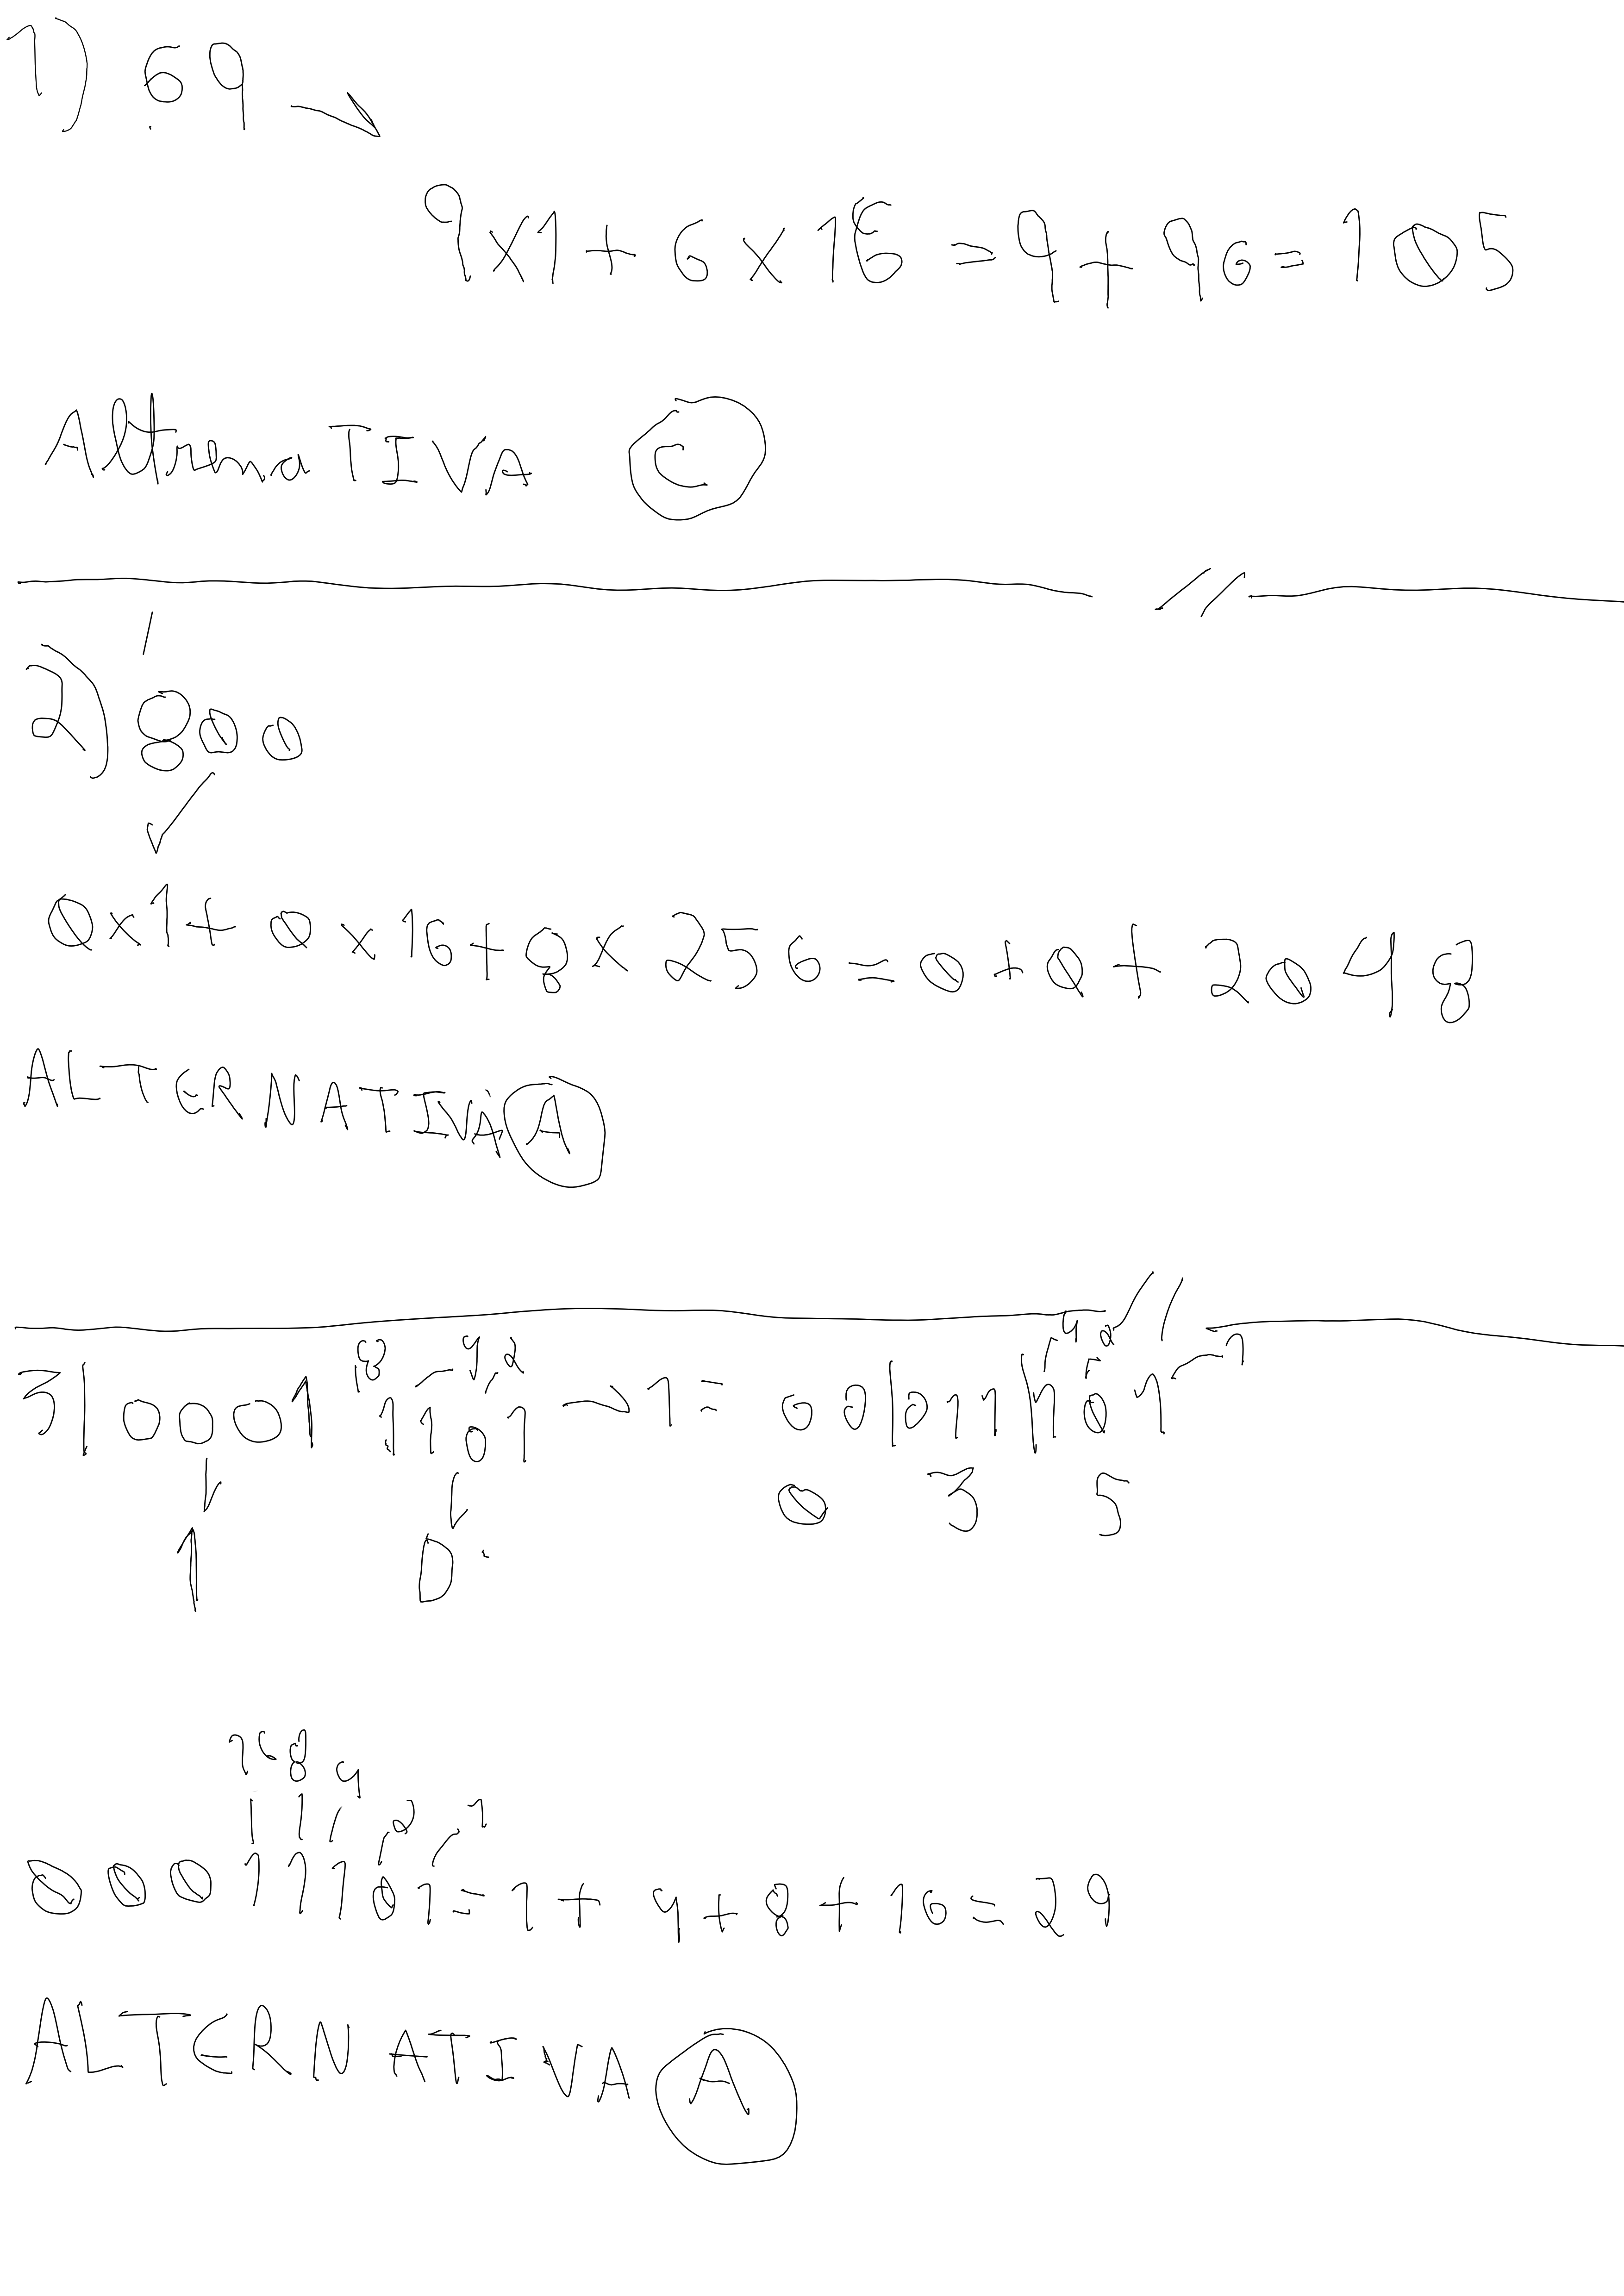 1) 69
9x1+6x16=9+96=105
AltrenaTIVA C
2) 800
0x1+0x16+8x256=0+0+2048
ALTERNATIVA A
8 4 2 4 2
3| 0001 1101 → 1 = 00|011|101 1
0 3 5
1 D
16 8 4 2 1
00011101=1+4+8+16=29
ALTERNATIVA A